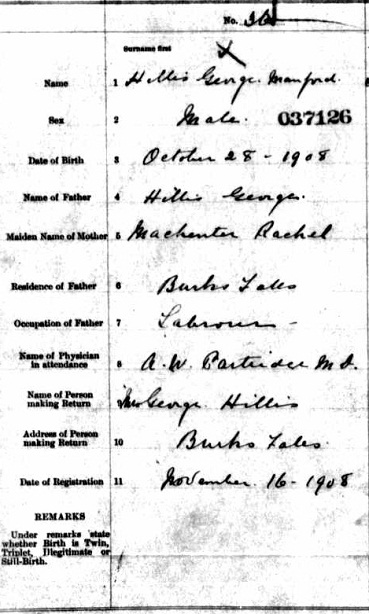 No. 36
Surname first
Name 1 Hillis George Manford.
Sex 2 Male. 037126
Date of Birth 3 October 28 - 1908
Name of Father 4 Hillis George.
Maiden Name of Mother 5 Machenter Rachel
Residence of Father 6 Burks Falls
Occupation of Father 7 Labourer -
Name of Physician
in attendance 8 A. W. Partridge M. D.
Name of Person
making Return George Hillis
Address of Person
making Return 10 Burks Falls.
Date of Registration 11 November 16 - 1908
REMARKS
Under remarks state
whether Birth is Twin,
Triplet, Illegitimate or
Still-Birth.